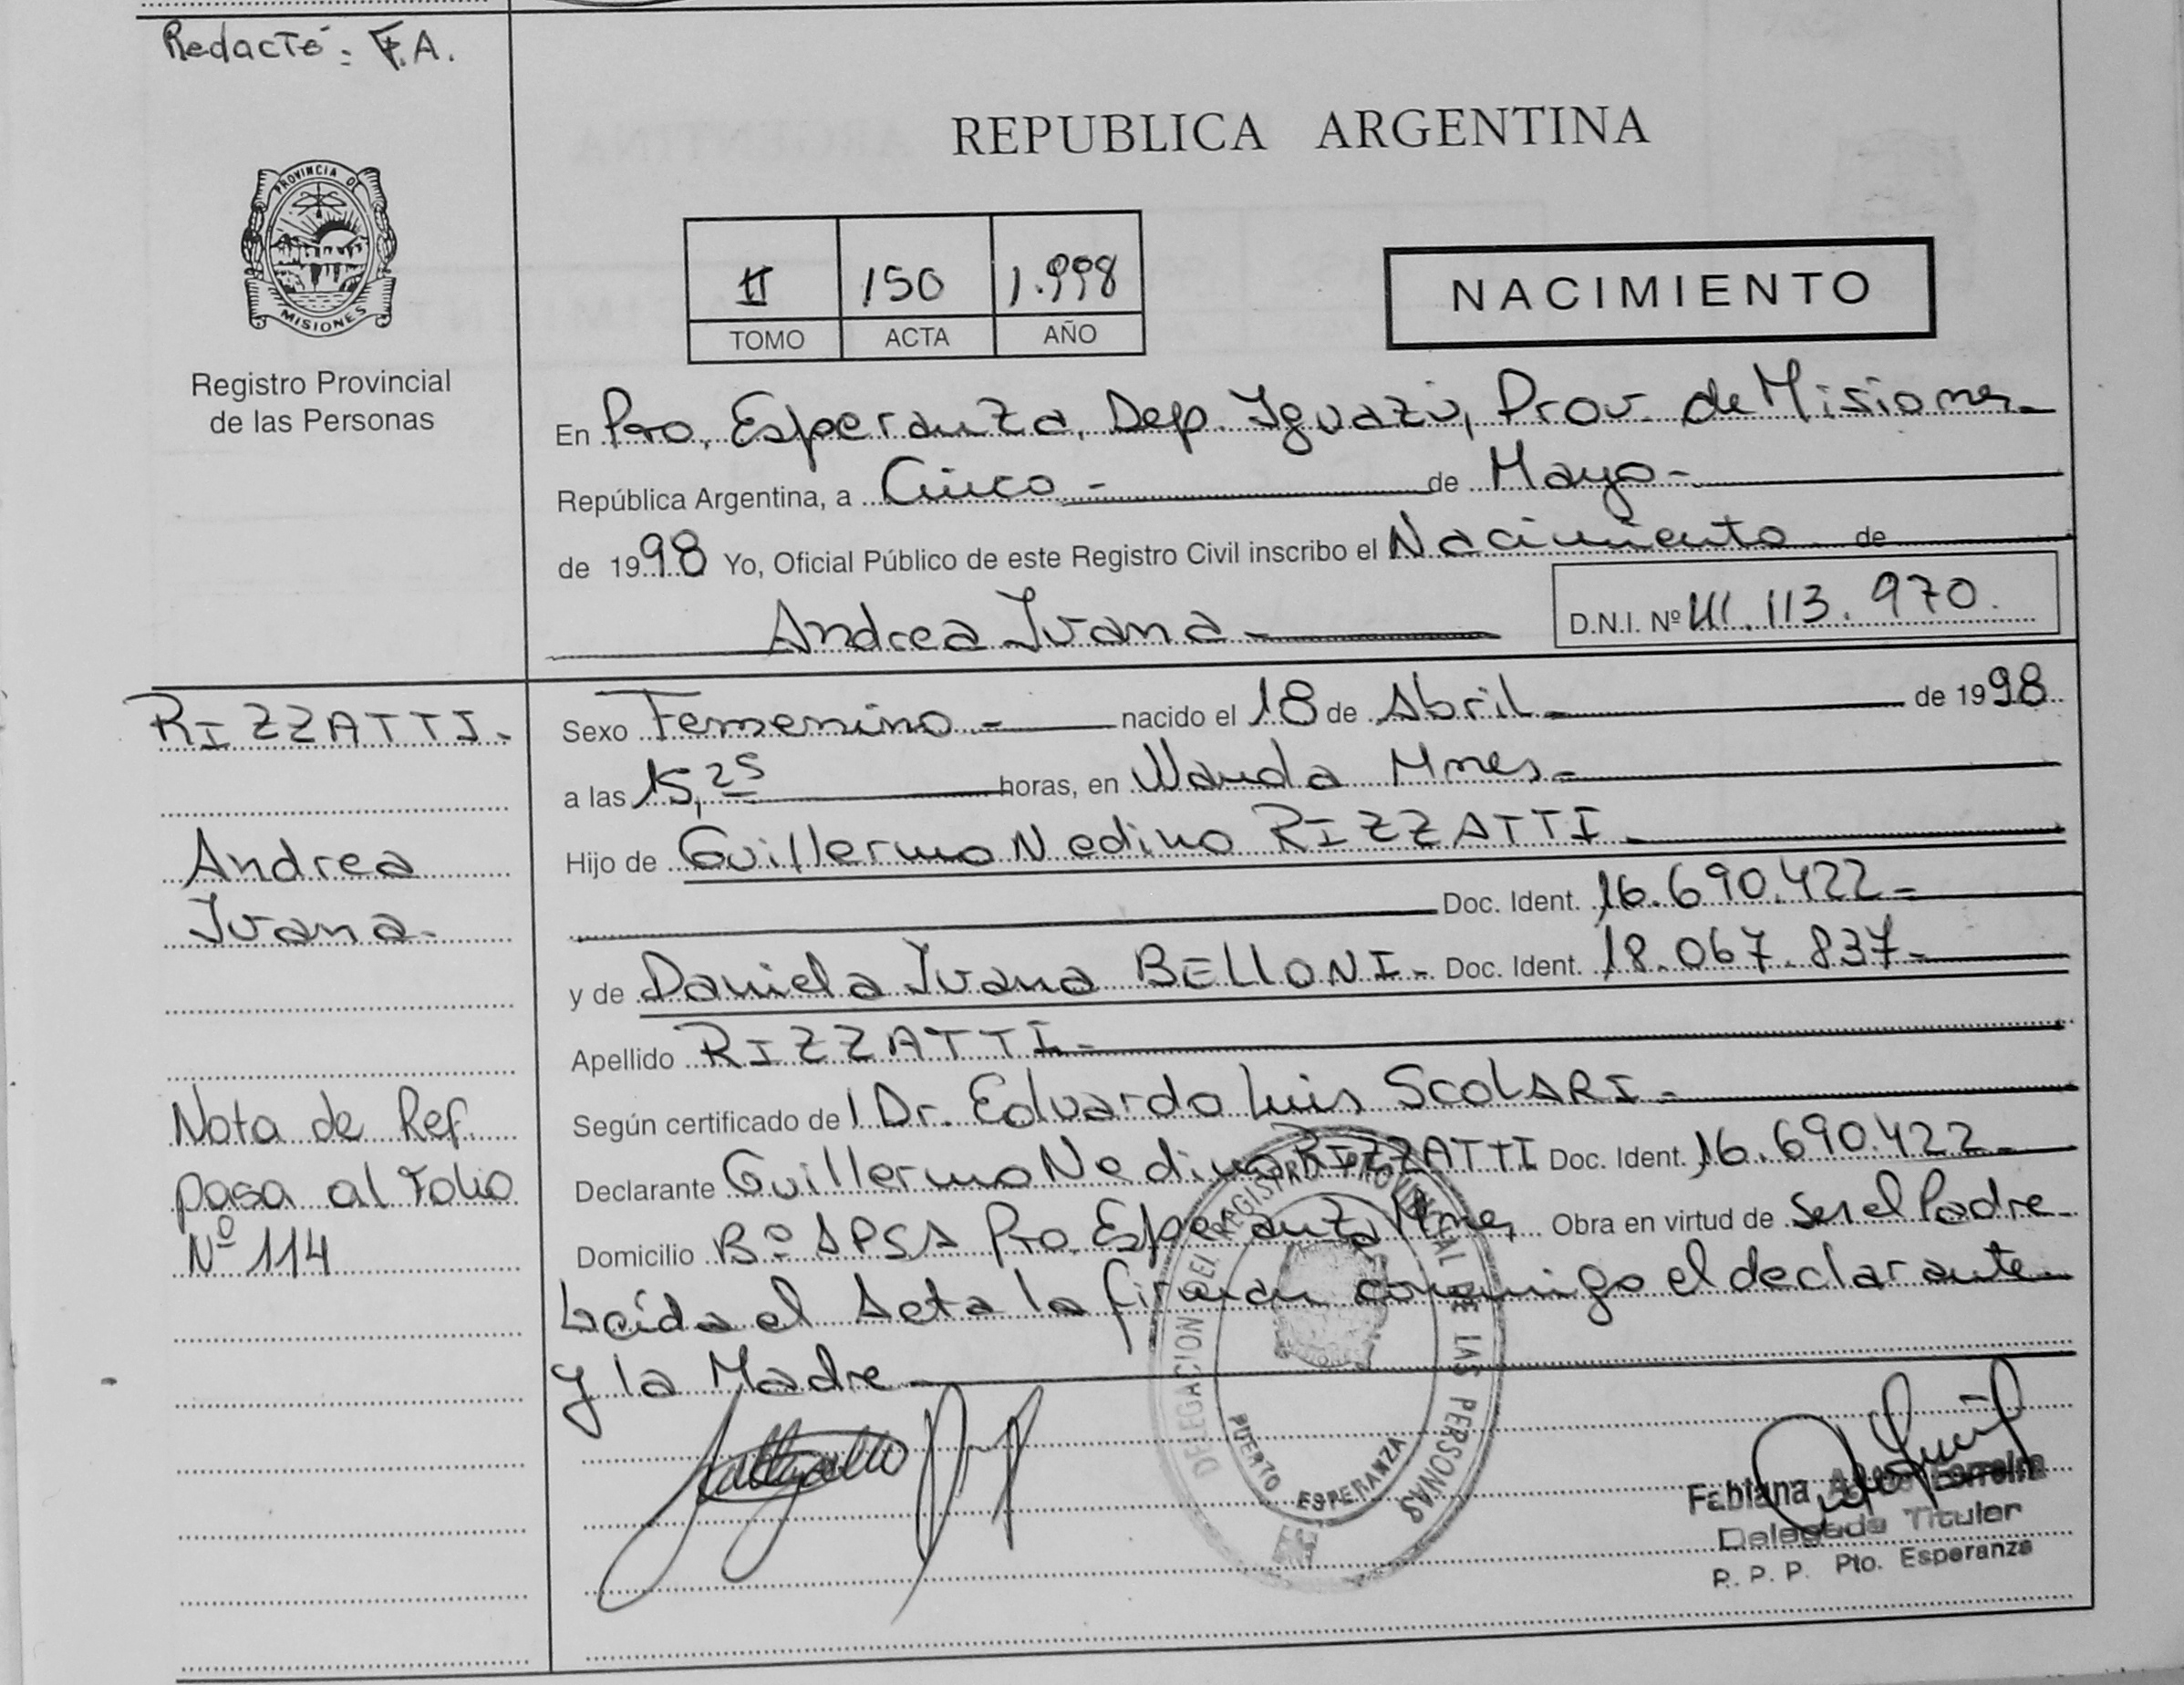 Redactó: F.A.
PROVINCIA DE
MISIONES
Registro Provincial
de las Personas
REPUBLICA ARGENTINA
II 150 1.998
TOMO ACTA AÑO
NACIMIENTO
En Pto. Esperanza, Dep. Iguazú, Prov. de Misiones
República Argentina, a Cinco - de Mayo -
de 1998 Yo, Oficial Público de este Registro Civil inscribo el Nacimiento de
Andrea Ivana - D.N.I. Nº 41.113.970.
RIZZATTI.
Andrea
Ivana.
Nota de Ref.
pasa al Folio
Nº 114
Sexo Femenino - nacido el 18 de Abril - de 1998
a las 15,25 horas, en Wanda Mnes -
Hijo de Guillermo Nedino RIZZATTI -
Doc. Ident. 16.690.422 -
y de Daniela Ivana BELLONI - Doc. Ident. 18.067.837 -
Apellido RIZZATTI -
Según certificado de l Dr. Eduardo Luis SCOLARI -
Declarante Guillermo Nedino RIZZATTI Doc. Ident. 16.690.422 -
Domicilio Bº APSA Pto. Esperanza Mnes Obra en virtud de Ser el Padre -
Leída el Acta la firman conmigo el declarante
y la Madre -
DELEGACION DEL REGISTRO PROVINCIAL DE LAS PERSONAS
PUERTO ESPERANZA
Fabiana Ferreira
Delegada Titular
R. P. P. Pto. Esperanza